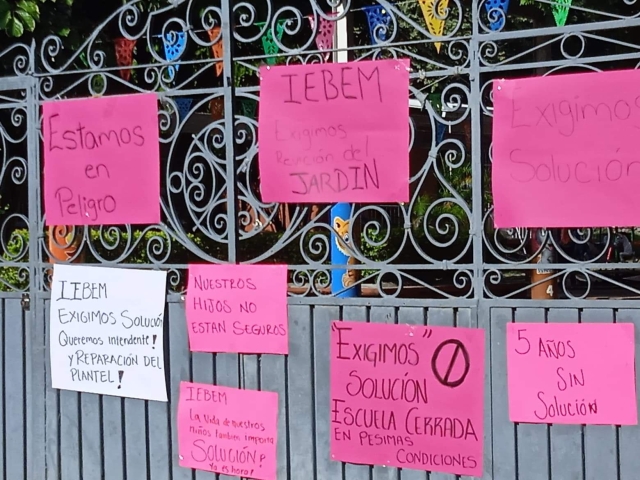 Estamos
en
Peligro
IEBEM
Exigimos
Revición del
JARDIN
Exigimos
Solución
IEBEM
EXIGIMOS SOLUCIÓN
Queremos intendente!
y REPARACIÓN DEL
PLANTEL!
NUESTROS
HIJOS NO
ESTAN SEGUROS
IEBEM
La Vida de nuestros
niños tambien importa
SOLUCIÓN!
Ya es hora!
"EXIGIMOS"
SOLUCIÓN
ESCUELA CERRADA
EN PESIMAS
CONDICIONES
5 AÑOS
SIN
SOLUCIÓN